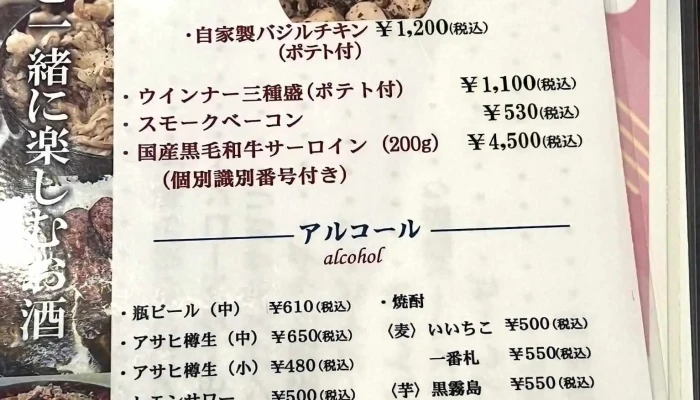 ・自家製バジルチキン ¥1,200(税込)
(ポテト付)
・ウインナー三種盛(ポテト付) ¥1,100(税込)
・スモークベーコン ¥530(税込)
・国産黒毛和牛サーロイン (200g) ¥4,500(税込)
(個別識別番号付き)
アルコール
alcohol
・瓶ビール (中) ¥610(税込)
・アサヒ樽生 (中) ¥650(税込)
・アサヒ樽生 (小) ¥480(税込)
・レモンサワー ¥500(税込)
・焼酎
〈麦〉いいちこ ¥500(税込)
一番札 ¥550(税込)
〈芋〉黒霧島 ¥550(税込)
一緒に楽しむお酒